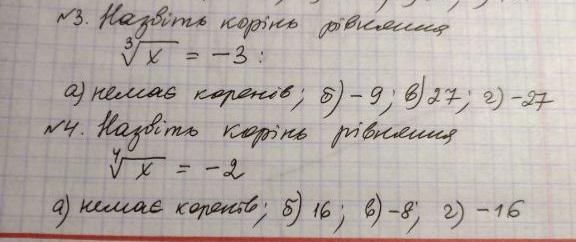 №3. Назвіть корінь рівняння
∛x = -3 :
а) немає коренів; б) -9; в) 27; г) -27
№4. Назвіть корінь рівняння
∜x = -2
а) немає коренів; б) 16; в) -8; г) -16